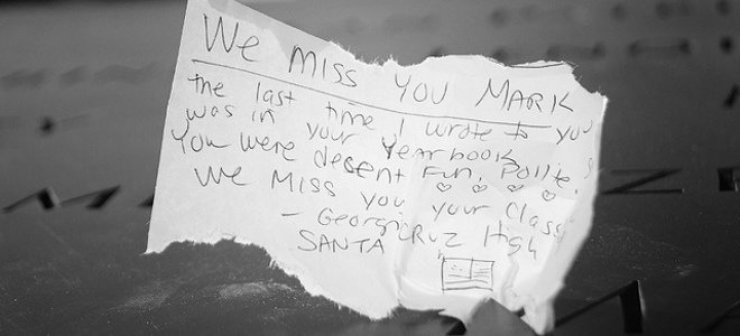 We MISS YOU MARK
the last time I wrote to you
was in your Yearbook
You were desent Fun, Polite,
We MISS you your Class
- Georg
SANTA CRUZ High